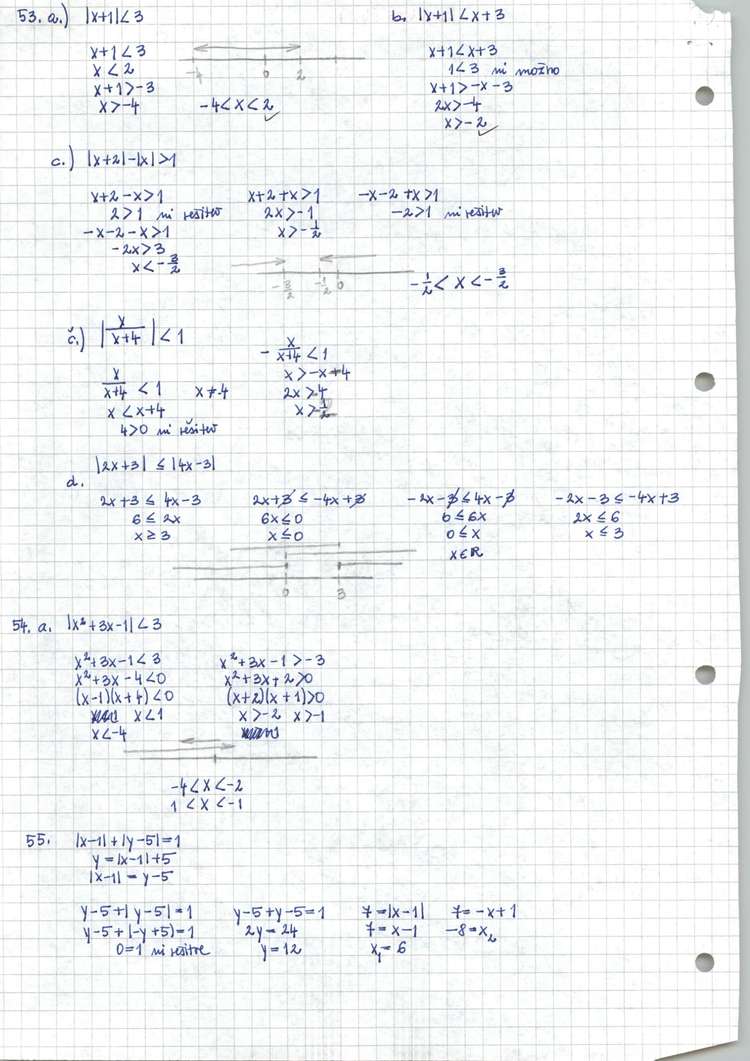 53. a.) |x+1|<3
x+1<3
x<2
x+1>-3
x>-4
-4 0 2
-4<x<2 ✓
b. |x+1|<x+3
x+1<x+3
1<3 ni možno
x+1>-x-3
2x>-4
x>-2 ✓
c.) |x+2|-|x|>1
x+2-x>1
2>1 ni rešitev
-x-2-x>1
-2x>3
x<-3/2
x+2+x>1
2x>-1
x>-1/2
-x-2+x>1
-2>1 ni rešitev
-3/2 -1/2 0
-1/2<x<-3/2
č.) |x/(x+4)|<1
x/(x+4)<1 x≠-4
x<x+4
4>0 ni rešitev
-x/(x+4)<1
x>-x+4
2x>4
d. |2x+3|≤|4x-3|
2x+3≤4x-3
6≤2x
x≥3
2x+3≤-4x+3
6x≤0
x≤0
-2x-3≤4x-3
0≤6x
0≤x
x∈R
-2x-3≤-4x+3
2x≤6
x≤3
0 3
54. a. |x²+3x-1|<3
x²+3x-1<3
x²+3x-4<0
(x-1)(x+4)<0
x<1
x<-4
x²+3x-1>-3
x²+3x+2>0
(x+2)(x+1)>0
x>-2 x>-1
-4<x<-2
1<x<-1
55. |x-1|+|y-5|=1
y=|x-1|+5
|x-1|=y-5
y-5+|y-5|=1
y-5+(-y+5)=1
0=1 ni rešitve
y-5+y-5=1
2y=24
y=12
7=|x-1|
7=x-1
x₁=6
7=-x+1
-8=x₂